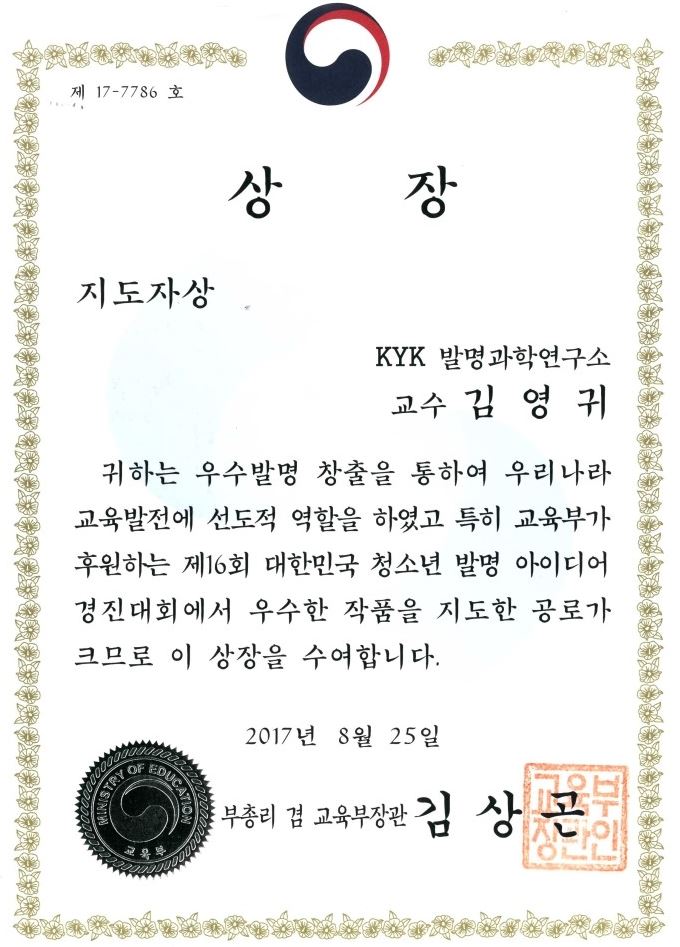 제 17-7786 호
상 장
지도자상
KYK 발명과학연구소
교수 김 영 귀
귀하는 우수발명 창출을 통하여 우리나라
교육발전에 선도적 역할을 하였고 특히 교육부가
후원하는 제16회 대한민국 청소년 발명 아이디어
경진대회에서 우수한 작품을 지도한 공로가
크므로 이 상장을 수여합니다.
2017년 8월 25일
MINISTRY OF EDUCATION
교육부
부총리 겸 교육부장관 김 상 곤
교육부
장관인